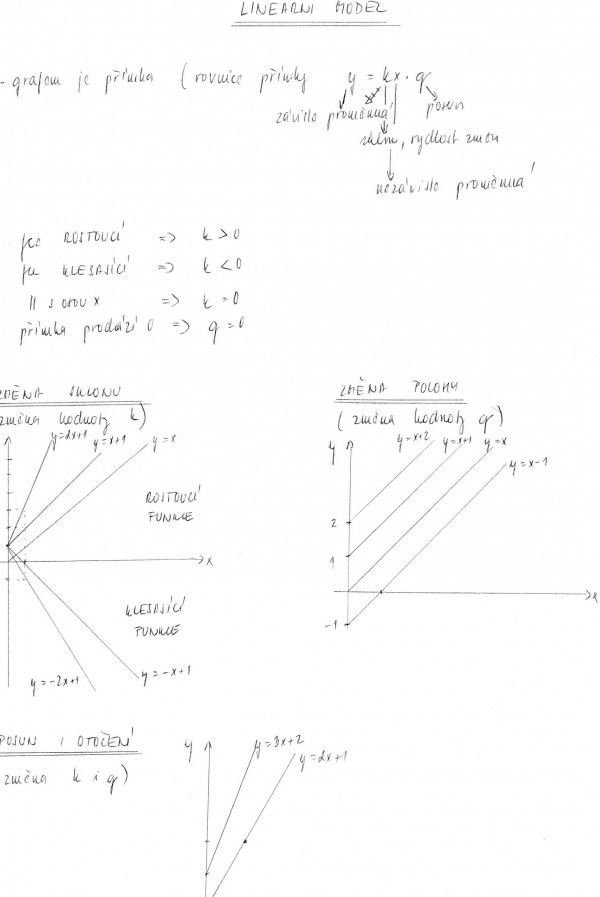 LINEARNI MODEL
- grafem je přímka (rovnice přímky y = kx + q
závislo proměnná posun
sklon, rychlost změn
nezávislo proměnná
je ROSTOUCÍ => k > 0
je KLESAJÍCÍ => k < 0
|| s osou x => k = 0
přímka prochází 0 => q = 0
ZMĚNA SKLONU
(změna hodnoty k)
y=2x+1 y=x+1 y=x
ROSTOUCÍ
FUNKCE
x
KLESAJÍCÍ
FUNKCE
y=-2x+1 y=-x+1
ZMĚNA POLOHY
(změna hodnoty q)
y y=x+2 y=x+1 y=x
y=x-1
2
1
x
-1
POSUN I OTOČENÍ
(změna k i q)
y y=3x+2
y=2x+1